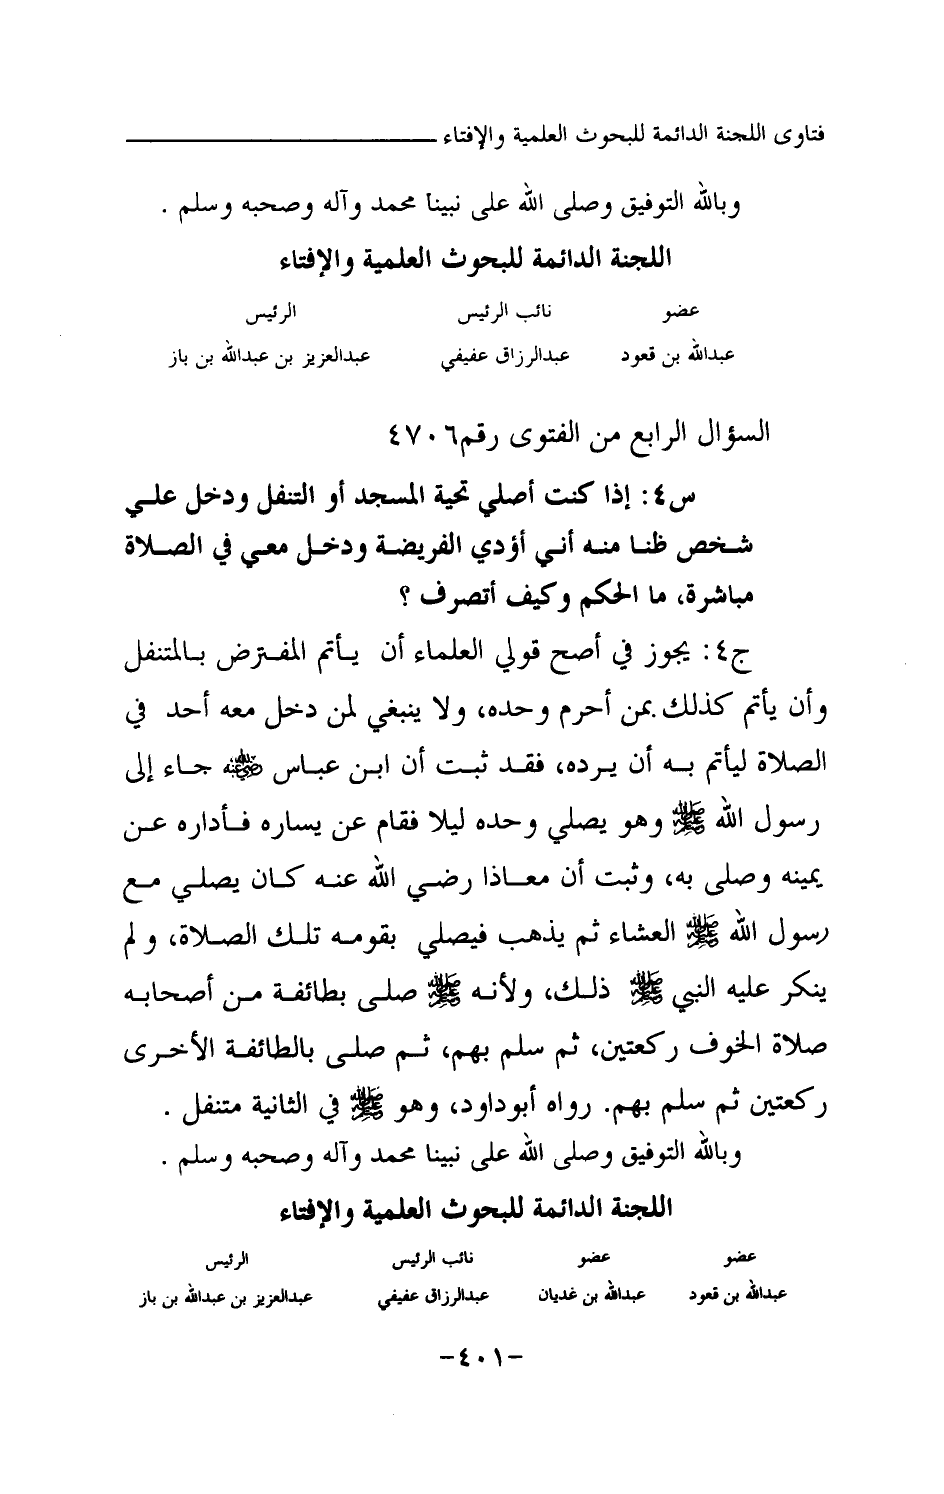 فتاوى اللجنة الدائمة للبحوث العلمية والإفتاء
وبالله التوفيق وصلى الله على نبينا محمد وآله وصحبه وسلم .
اللجنة الدائمة للبحوث العلمية والإفتاء
عضو نائب الرئيس الرئيس
عبدالله بن قعود عبدالرزاق عفيفي عبدالعزيز بن عبدالله بن باز
السؤال الرابع من الفتوى رقم ٤٧٠٦
س٤: إذا كنت أصلي تحية المسجد أو التنفل ودخل علي
شخص ظنا منه أني أؤدي الفريضة ودخل معي في الصلاة
مباشرة، ما الحكم وكيف أتصرف ؟
ج٤: يجوز في أصح قولي العلماء أن يأتم المفترض بالمتنفل
وأن يأتم كذلك بمن أحرم وحده، ولا ينبغي لمن دخل معه أحد في
الصلاة ليأتم به أن يرده، فقد ثبت أن ابن عباس رضي الله عنه جاء إلى
رسول الله ﷺ وهو يصلي وحده ليلا فقام عن يساره فأداره عن
يمينه وصلى به، وثبت أن معاذا رضي الله عنه كان يصلي مع
رسول الله ﷺ العشاء ثم يذهب فيصلي بقومه تلك الصلاة، ولم
ينكر عليه النبي ﷺ ذلك، ولأنه ﷺ صلى بطائفة من أصحابه
صلاة الخوف ركعتين، ثم سلم بهم، ثم صلى بالطائفة الأخرى
ركعتين ثم سلم بهم. رواه أبوداود، وهو ﷺ في الثانية متنفل .
وبالله التوفيق وصلى الله على نبينا محمد وآله وصحبه وسلم .
اللجنة الدائمة للبحوث العلمية والإفتاء
عضو عضو نائب الرئيس الرئيس
عبدالله بن قعود عبدالله بن غديان عبدالرزاق عفيفي عبدالعزيز بن عبدالله بن باز
-٤٠١-